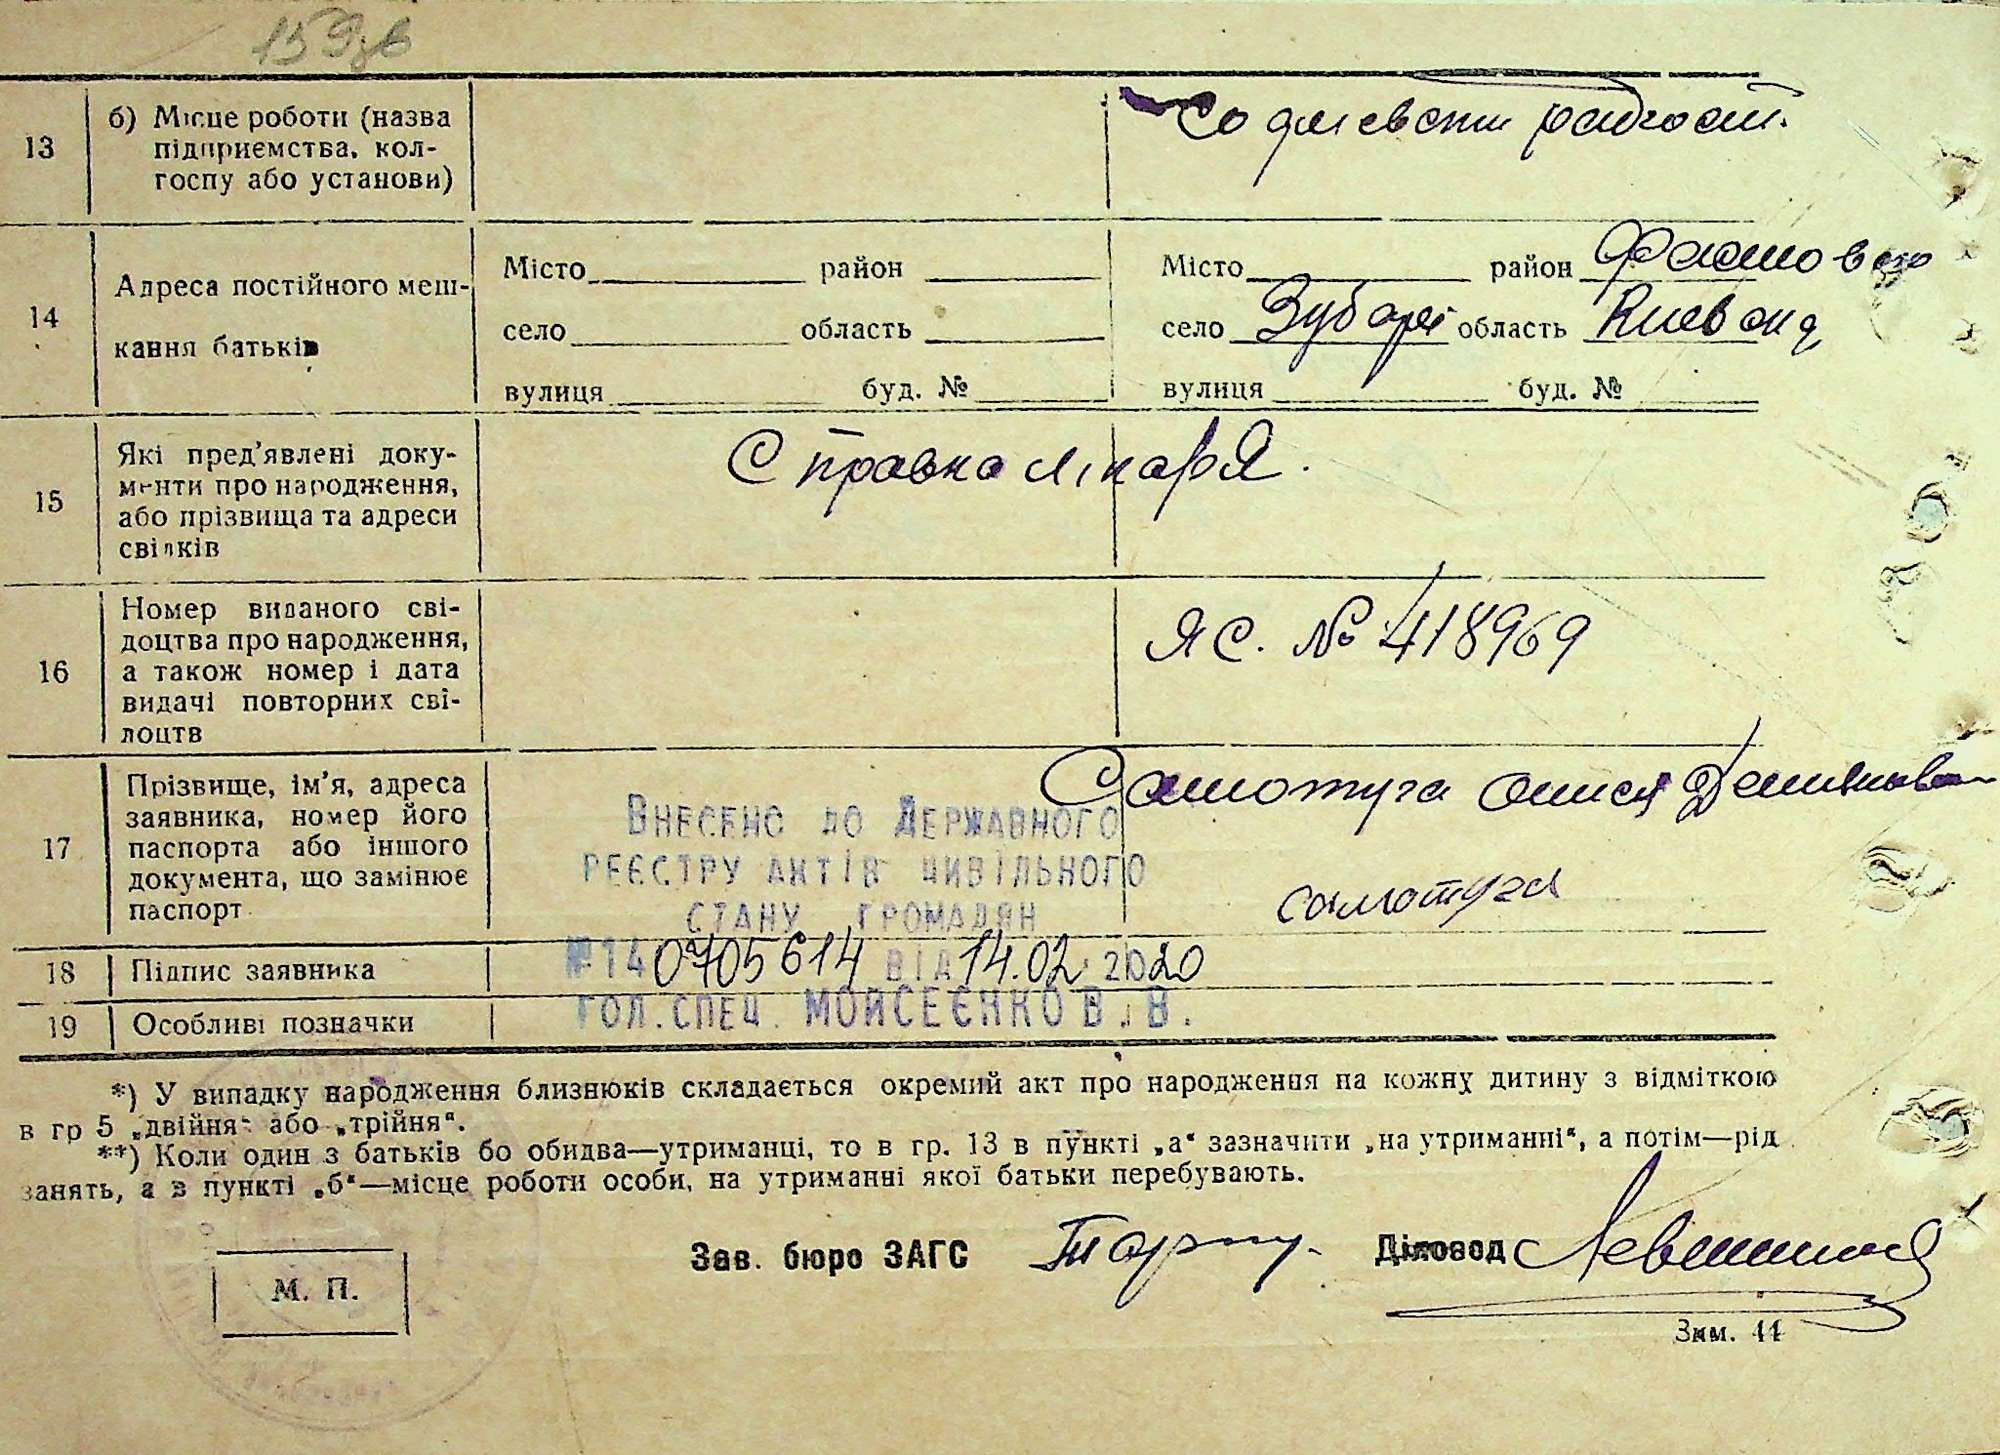 159зв
13 б) Місце роботи (назва
підприємства, кол-
госпу або установи)
14 Адреса постійного меш-
кання батьків
Місто район
село область
вулиця буд. №
Місто район
село Зубарі область Киевска
вулиця буд. №
15 Які пред'явлені доку-
менти про народження,
або прізвища та адреси
свідків
Справка лікаря.
16 Номер виданого сві-
доцтва про народження,
а також номер і дата
видачі повторних сві-
доцтв
ЯС. № 418969
17 Прізвище, ім'я, адреса
заявника, номер його
паспорта або іншого
документа, що замінює
паспорт
Самотуга
Самотуга
Внесено до Державного
реєстру актів цивільного
стану громадян
№140705614 від 14.02.2020
гол.спец. Мойсеєнко В.В.
18 Підпис заявника
19 Особливі позначки
*) У випадку народження близнюків складається окремий акт про народження на кожну дитину з відміткою
в гр 5 „двійня“ або „трійня“.
**) Коли один з батьків бо обидва—утриманці, то в гр. 13 в пункті „а“ зазначити „на утриманні“, а потім—рід
занять, а в пункті „б“—місце роботи особи, на утриманні якої батьки перебувають.
Зав. бюро ЗАГС Діловод
М. П.
Зам. 11